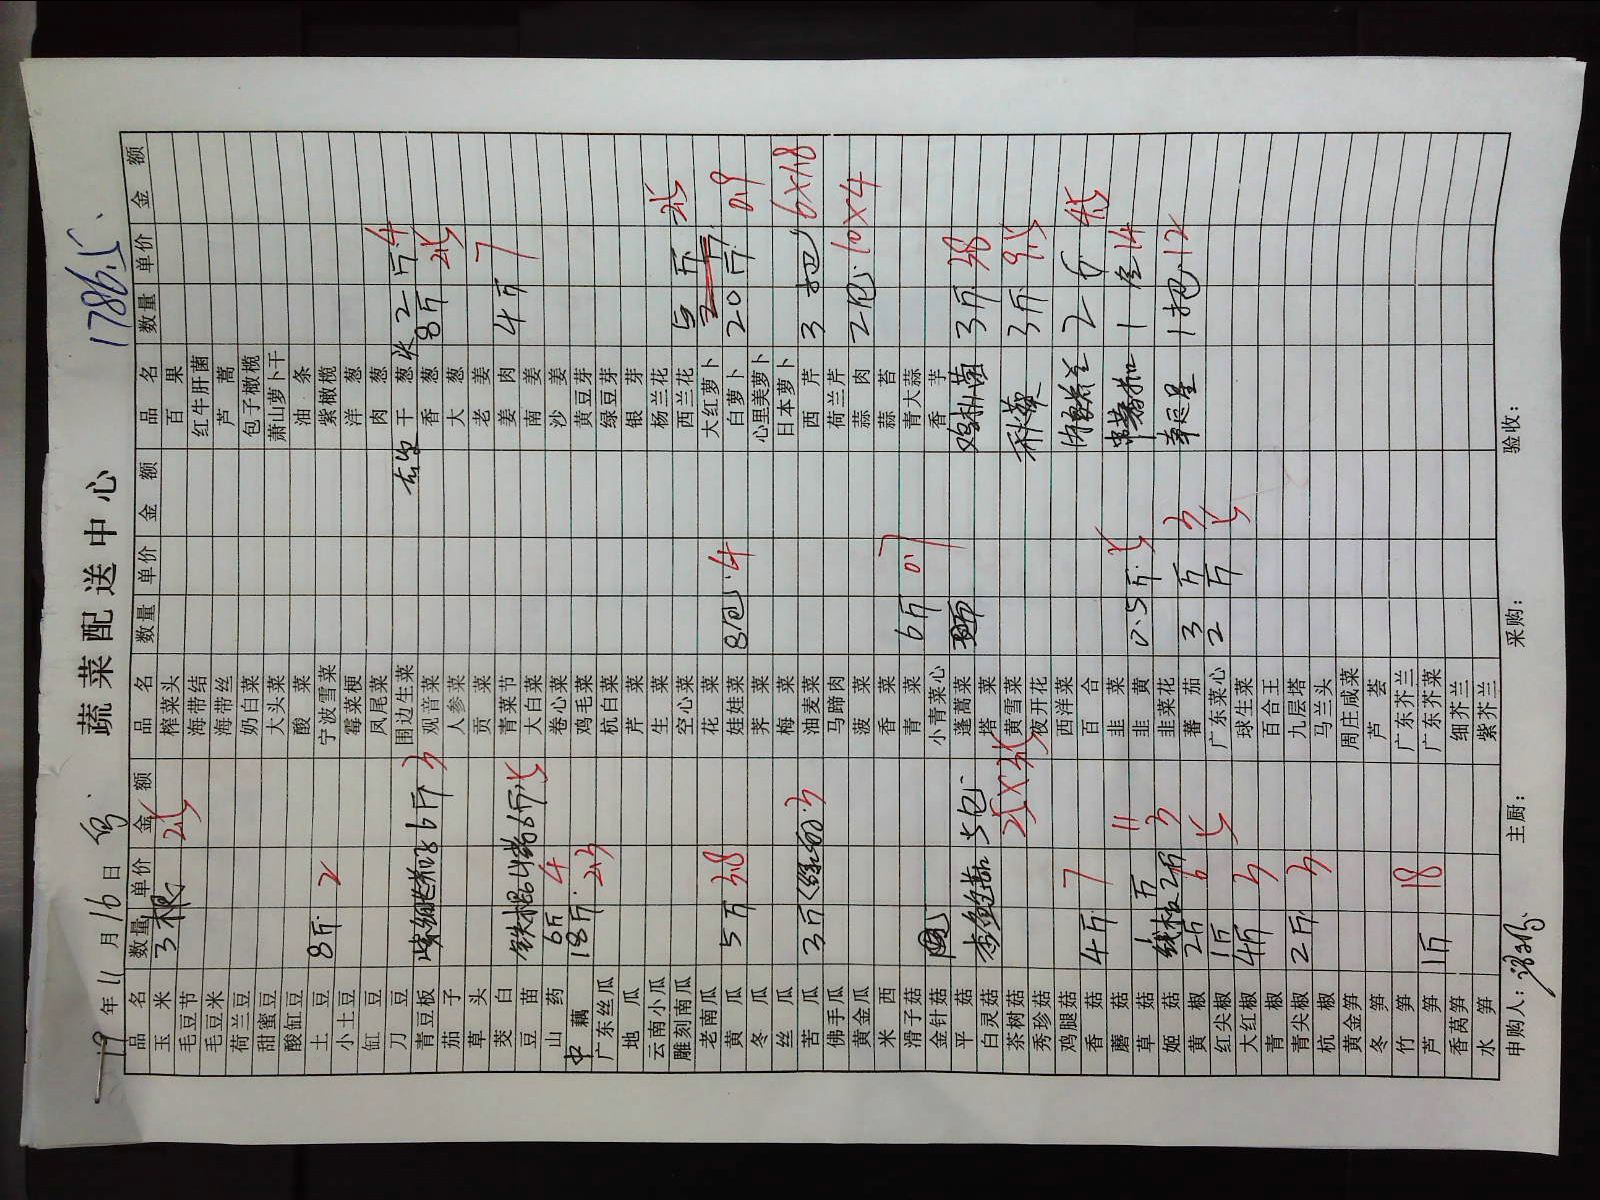 蔬菜配送中心
1786.5
19年11月16日
品名 数量 单价 金额 品名 数量 单价 金额 品名 数量 单价 金额
玉米 3根 2.5 榨菜头 百果
毛豆节 海带结 红牛肝菌
毛豆米 海带丝 芦蒿
荷兰豆 奶白菜 包子橄榄
甜蜜豆 大头菜 萧山萝卜干
酸缸豆 酸菜 油条
土豆 8斤 2 宁波雪菜 紫橄榄
小土豆 霉菜梗 洋葱
缸豆 凤尾菜 肉葱
刀豆 围边生菜 干葱头 2斤 4
青豆板 6斤 3 观音菜 香葱 8斤 2.5
茄子 人参菜 大葱
草头 贡菜 老姜
茭白 青菜节 姜肉 4斤 7
豆苗 铁棍山药 6斤 大白菜 南姜
山药 6斤 4 卷心菜 沙姜
中藕 18斤 2.3 鸡毛菜 黄豆芽
广东丝瓜 杭白菜 绿豆芽
地瓜 芹菜 银芽
云南小瓜 生菜 杨兰花
雕刻南瓜 空心菜 西兰花 5斤
老南瓜 花菜 大红萝卜
黄瓜 5斤 3.8 娃娃菜 8包 4 白萝卜 20斤 0.9
冬瓜 荠菜 心里美萝卜
丝瓜 梅菜 日本萝卜
苦瓜 3斤 油麦菜 西芹 3把 6×1.8
佛手瓜 马蹄肉 荷兰芹
黄金瓜 菠菜 蒜肉 2包 10×4
米西 香菜 蒜苔
滑子菇 青菜 6斤 0.7 青大蒜
金针菇 小青菜心 香芋
平菇 蓬蒿菜 鸡枞菌 3斤 38
白灵菇 5包 塔菜
茶树菇 25×3.5 黄雪菜 秋葵 3斤 9.5
秀珍菇 夜开花
鸡腿菇 西洋菜 2
香菇 4斤 7 百合
蘑菇 11 韭菜 1 14
草菇 韭黄 0.5斤
姬菇 韭菜花 1把 12
黄椒 2斤 6 蕃茄 3斤 3
红尖椒 1斤 广东菜心 2斤
大红椒 4斤 3 球生菜
青椒 百合王
青尖椒 2斤 3 九层塔
杭椒 马兰头
黄金笋 周庄咸菜
冬笋 芦荟
竹笋 18 广东芥兰
芦笋 1斤 广东芥菜
香莴笋 细芥兰
水笋 紫芥兰
申购人： 主厨： 采购： 验收：